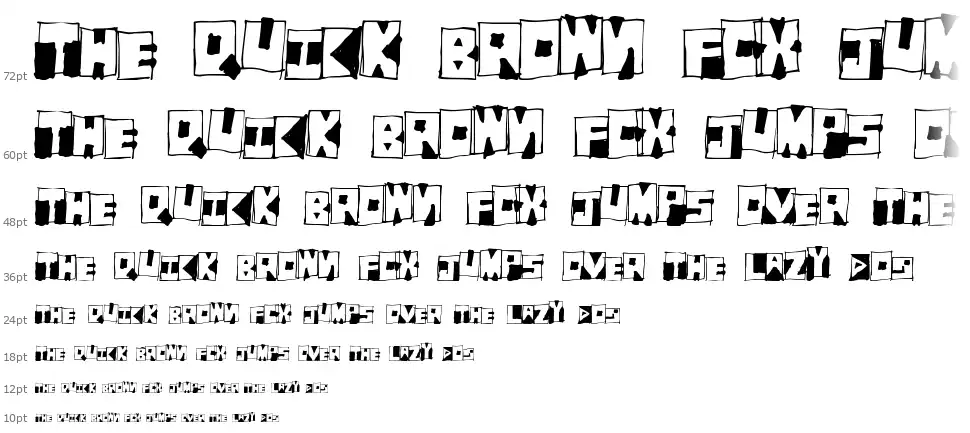 72pt THE QUICK BROWN FOX JUM
60pt THE QUICK BROWN FOX JUMPS O
48pt THE QUICK BROWN FOX JUMPS OVER THE
36pt THE QUICK BROWN FOX JUMPS OVER THE LAZY DOG
24pt THE QUICK BROWN FOX JUMPS OVER THE LAZY DOG
18pt THE QUICK BROWN FOX JUMPS OVER THE LAZY DOG
12pt THE QUICK BROWN FOX JUMPS OVER THE LAZY DOG
10pt THE QUICK BROWN FOX JUMPS OVER THE LAZY DOG